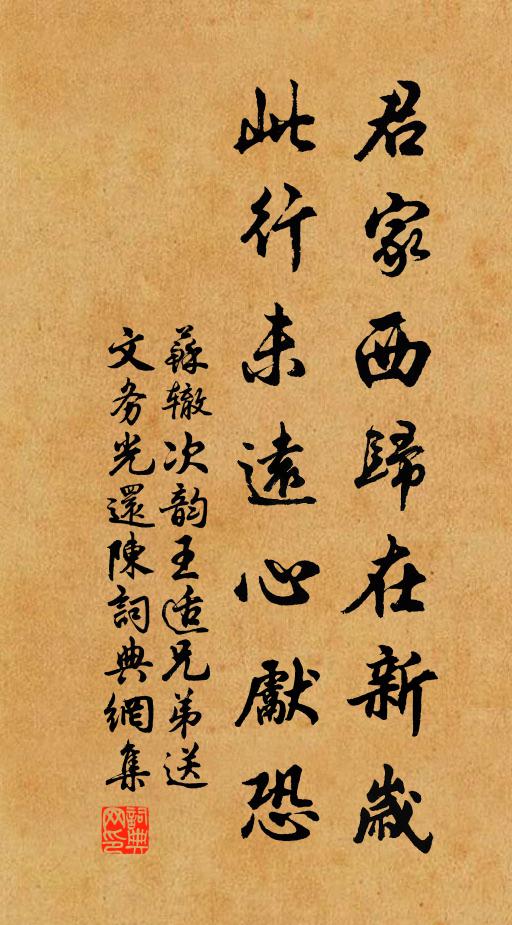 君家西歸在新歲
此行未遠心獻恐
蘇辙次韵王适兄弟送
文务光還陳詞典網集
詞典网印